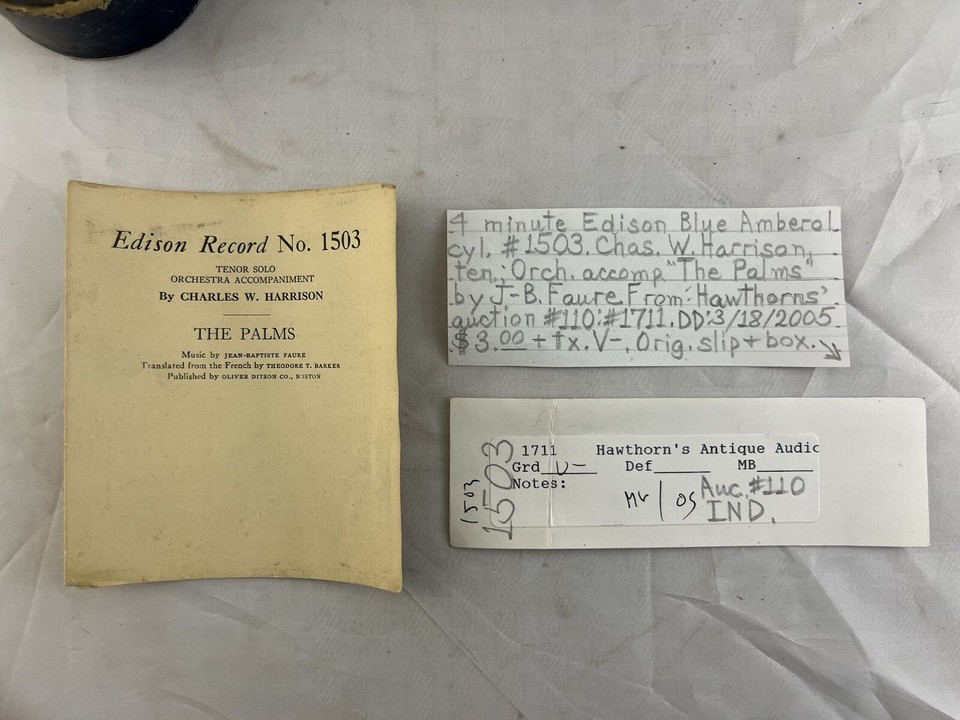 Edison Record No. 1503
TENOR SOLO
ORCHESTRA ACCOMPANIMENT
By CHARLES W. HARRISON
THE PALMS
Music by JEAN-BAPTISTE FAURE
Translated from the French by THEODORE T. BARKER
Published by OLIVER DITSON CO., BOSTON
4 minute Edison Blue Amberol
cyl. #1503. Chas. W. Harrison,
ten.; Orch. accomp. "The Palms"
by J-B. Faure From: 'Hawthorns'
auction #110:#1711. DD:3/18/2005
$3.00 + tx. V-. Orig. slip + box.
1503
1503
1711 Hawthorn's Antique Audio
Grd V- Def MB
Notes:
OS Auc. #110
IND.